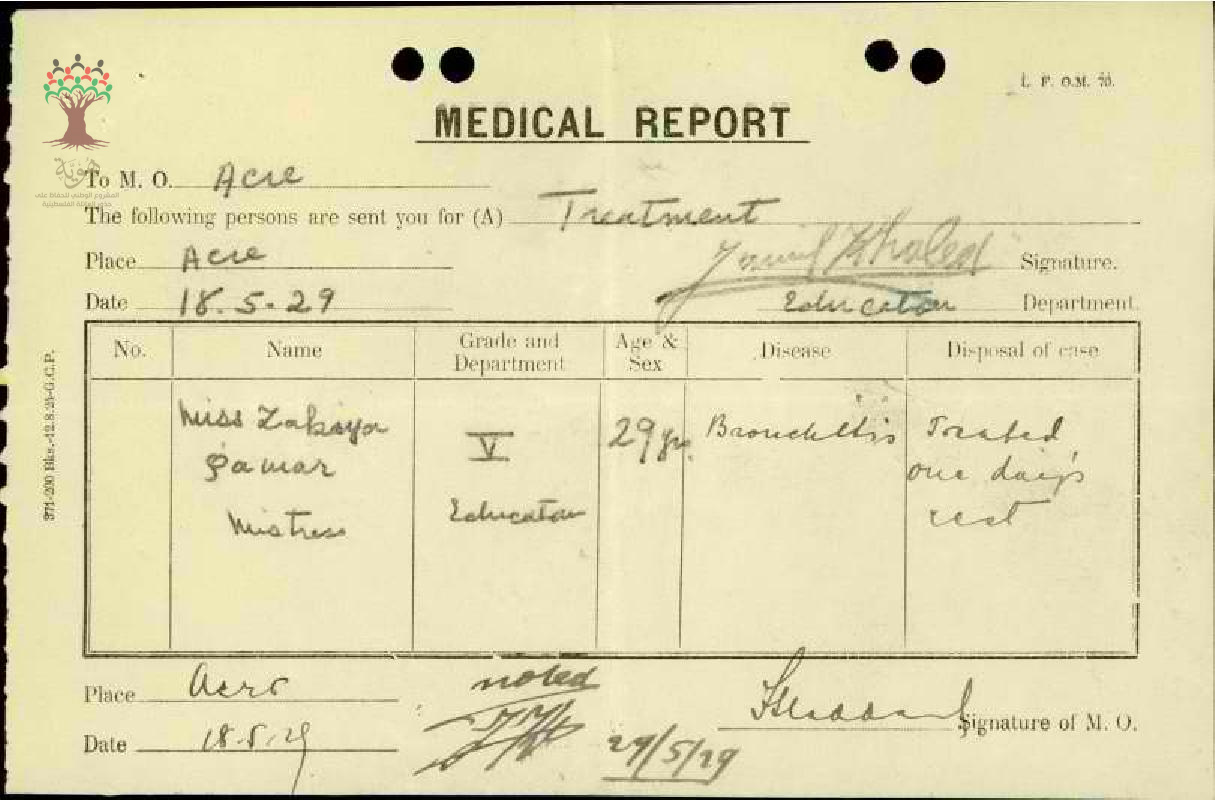 L. F. O.M. 70.
MEDICAL REPORT
هوية
المشروع الوطني للحفاظ على
جذور العائلة الفلسطينية
To M. O. Acre
The following persons are sent you for (A) Treatment
Place Acre Jamil Khaled Signature.
Date 18.5.29 Education Department.
No. Name Grade and Department Age & Sex Disease Disposal of case
Miss Zakiya V 29 yrs. Bronchitis Treated
Qamar one day's
Mistress Education rest
371-200 Bks.-12.8.25-G.C.P.
Place Acre noted
Signature of M. O.
Date 18.5.29 29/5/29